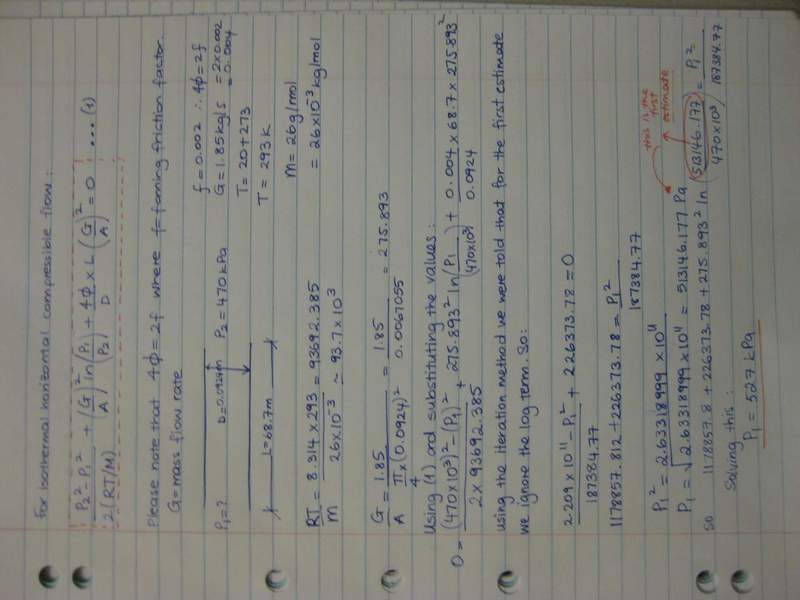 for isothermal horizontal compressible flow:
P₂² - P₁² / 2(RT/M) + (G/A)² ln(P₁/P₂) + 4ϕ/D × L (G/A)² = 0 ... (1)
Please note that 4ϕ = 2f where f = fanning friction factor.
G = mass flow rate
f = 0.002 ∴ 4ϕ = 2f
= 2×0.002
= 0.004
P₁ = ? D = 0.0924m P₂ = 470 kPa G = 1.85 kg/s
T = 20 + 273
T = 293 K
L = 68.7m
M = 26 g/mol
= 26×10⁻³ kg/mol
RT/M = 8.314 × 293 / 26×10⁻³ = 93692.385
≃ 93.7 × 10³
G/A = 1.85 / π/4 × (0.0924)² = 1.85 / 0.0067055 = 275.893
Using (1) and substituting the values:
0 = (470×10³)² - (P₁)² / 2 × 93692.385 + 275.893² ln(P₁ / 470×10³) + 0.004 × 68.7 × 275.893² / 0.0924
using the iteration method we were told that for the first estimate
we ignore the log term. So:
2.209 × 10¹¹ - P₁² / 187384.77 + 226373.78 = 0
1178857.812 + 226373.78 = P₁² / 187384.77
P₁² = 2.63318999 × 10¹¹
this is the first estimate
P₁ = √2.63318999 × 10¹¹ = 513146.177 Pa
so 1178857.8 + 226373.78 + 275.893² ln (513146.177 / 470×10³) = P₁² / 187384.77
Solving this:
P₁ = 527 kPa